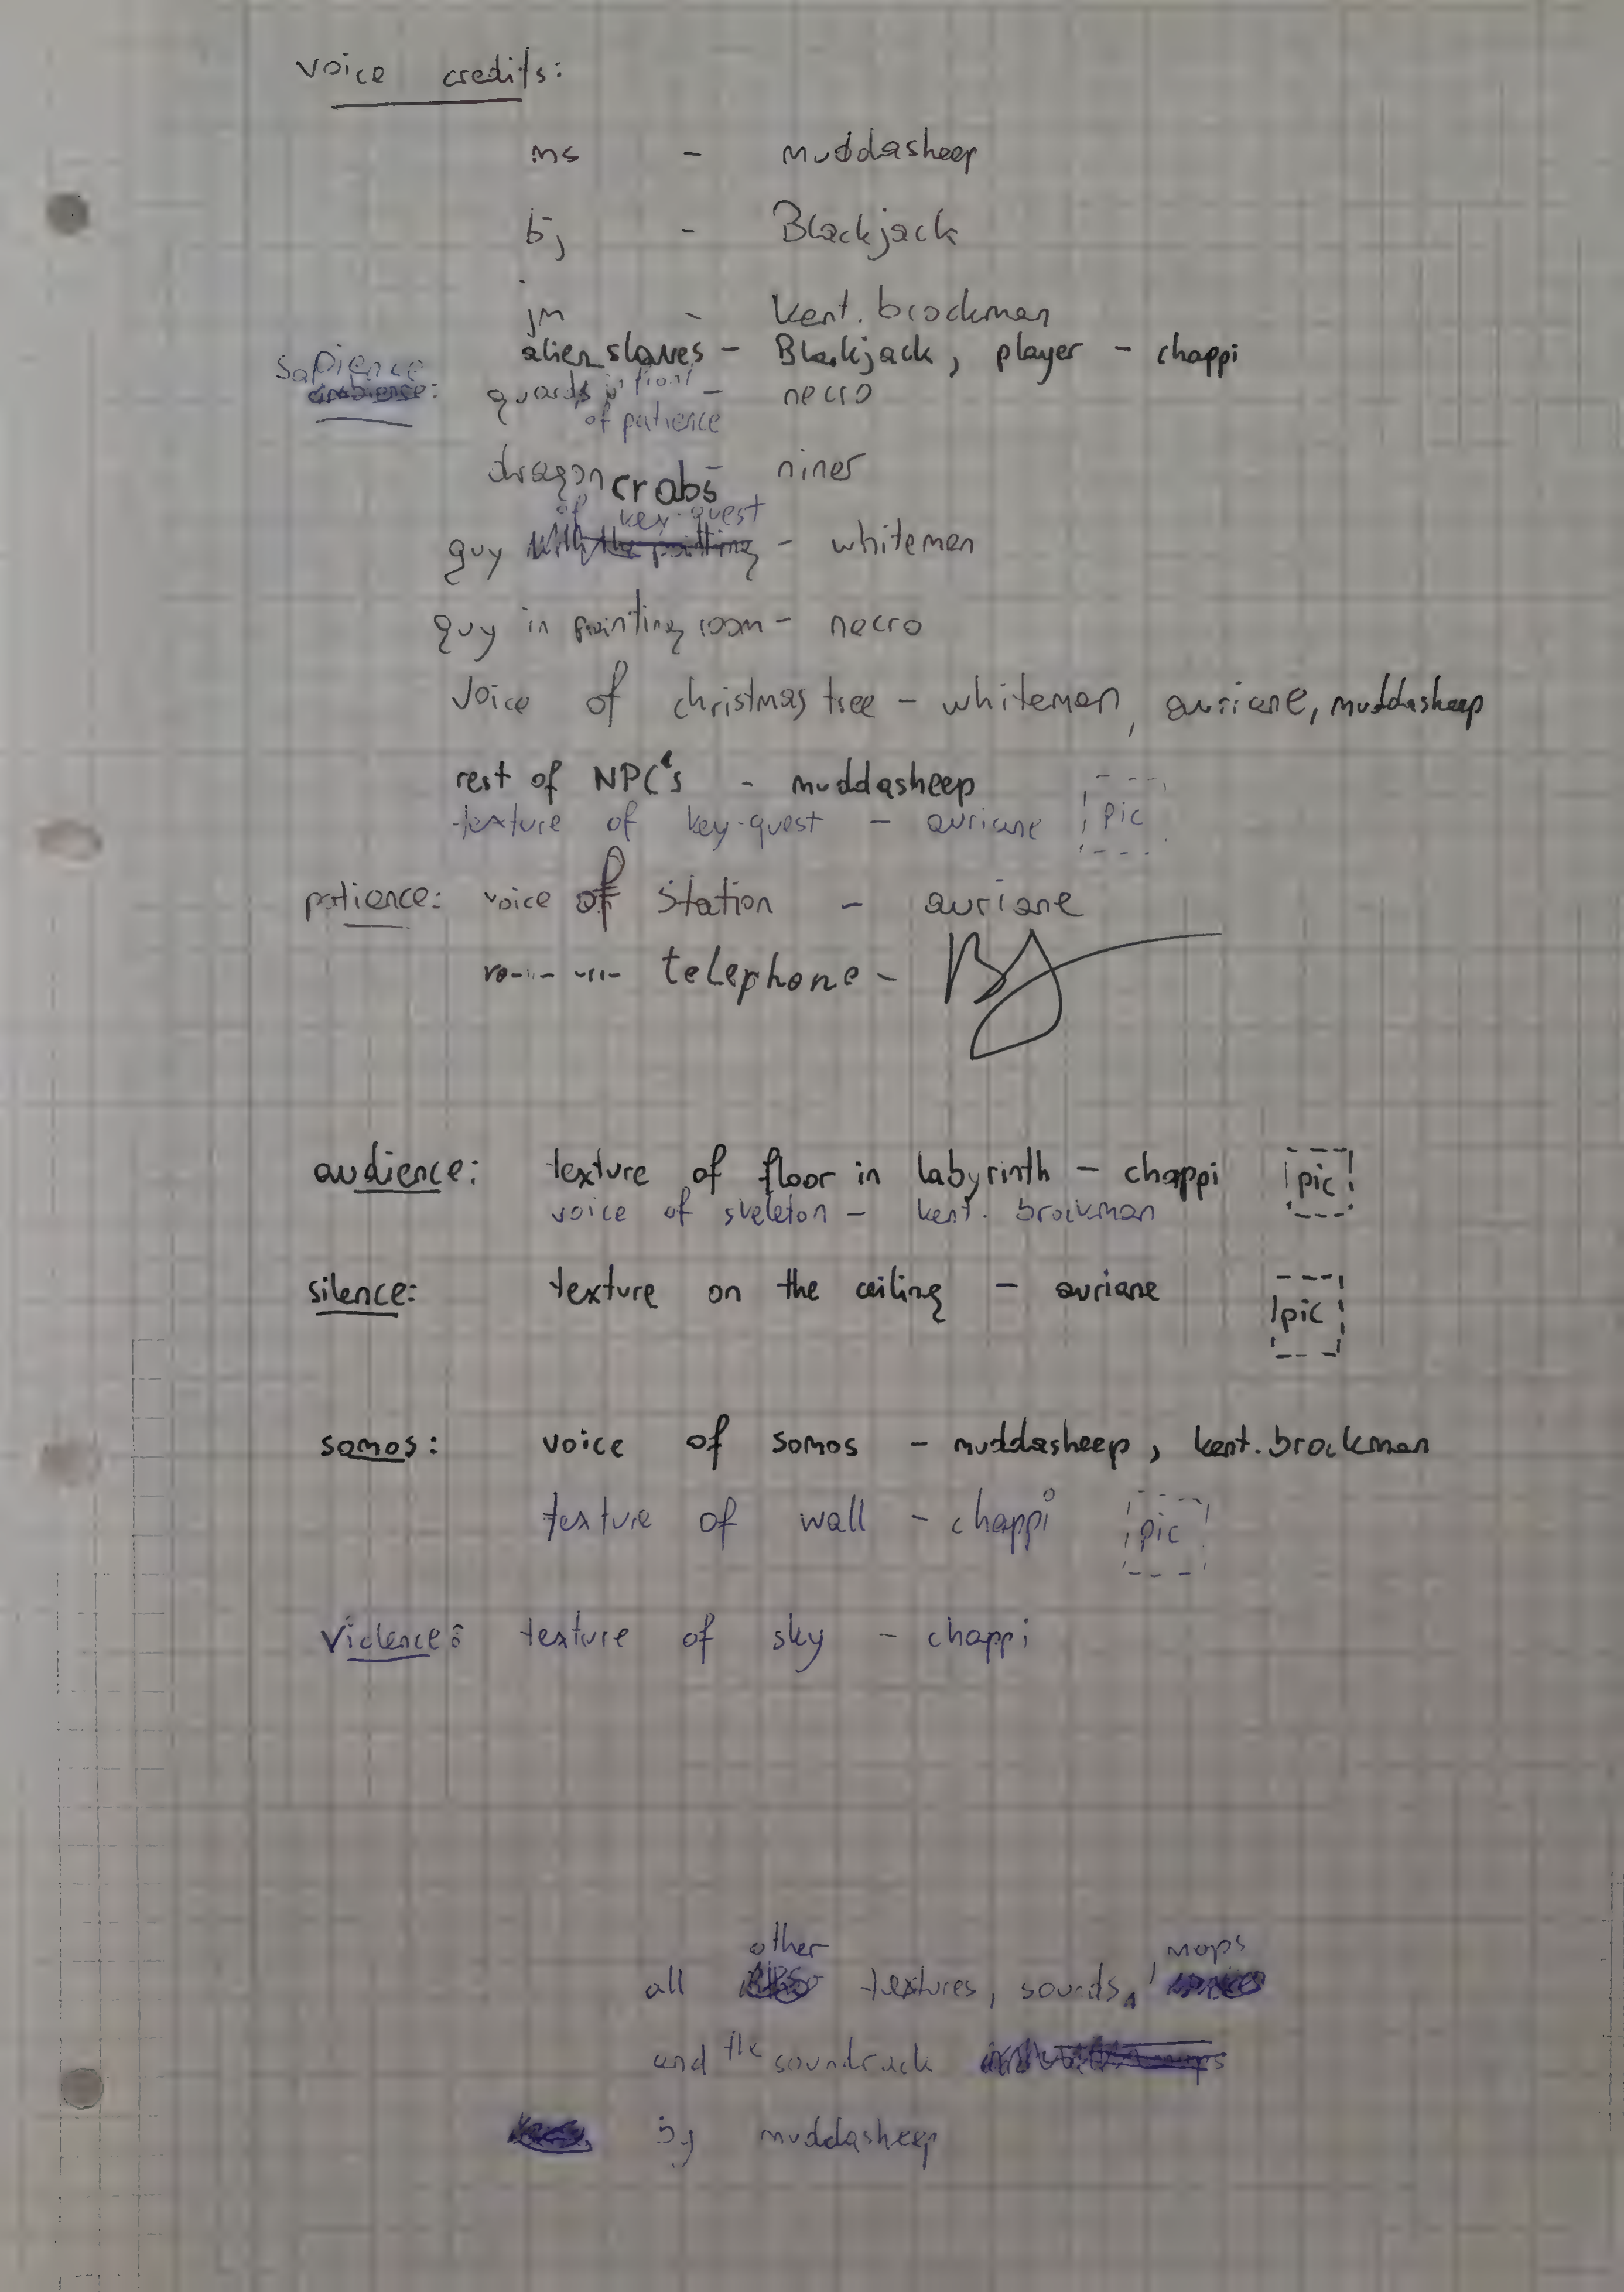 voice credits:
ms - muddasheep
bj - Blackjack
jm - kent. brockman
alien slaves - Blackjack, player - chappi
sapience
ambience: guards in front - necro
of patience
dragon crabs - niner
of key-quest
guy with the painting - whiteman
guy in painting room - necro
voice of christmas tree - whiteman, auriane, muddasheep
rest of NPC's - muddasheep
texture of key-quest - auriane pic
patience: voice of station - auriane
telephone - BJ
audience: texture of floor in labyrinth - chappi pic
voice of skeleton - kent. brockman
silence: texture on the ceiling - auriane pic
somos: voice of somos - muddasheep, kent. brockman
texture of wall - chappi pic
violence: texture of sky - chappi
other maps
all textures, sounds,
and the soundtrack
by muddasheep